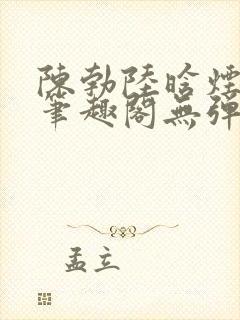 陳勃陸晗煙
筆趣閣無彈
孟立